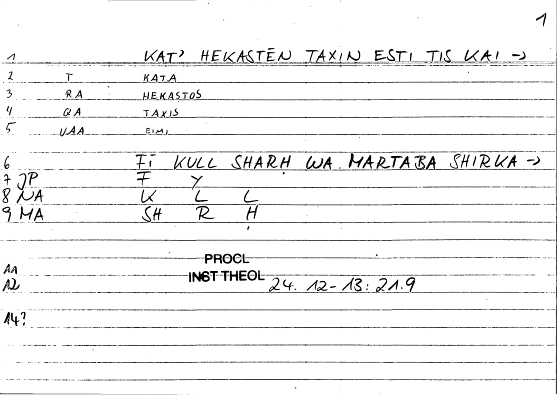 1
1 KAT' HEKASTĒN TAXIN ESTI TIS KAI →
2 T KATA
3 RA HEKASTOS
4 QA TAXIS
5 VAA EIMI
6 FĪ KULL SHARḤ WA MARTABA SHIRKA →
7 JP F Y
8 NA K L L
9 MA SH R Ḥ
11
PROCL
INST THEOL
12 24. 12-13: 21.9
14?